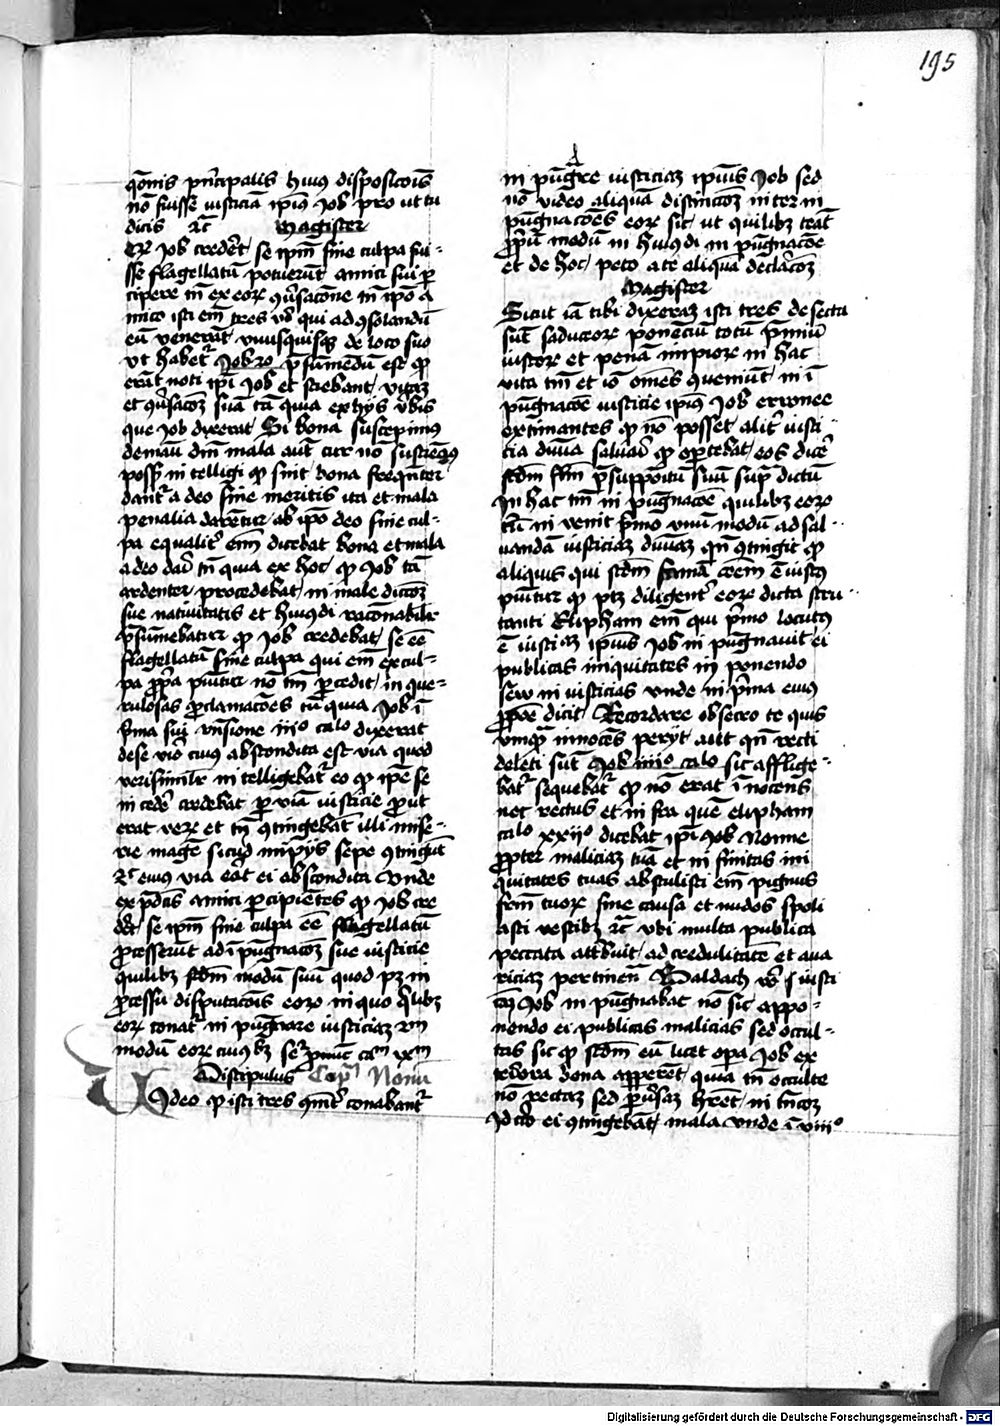 195
q̄onis principalis huius disposicōis
nō fuisse iusticiā ipius Job pro ut tu
dicis ꝛc̄ Magister
Job crederet se ipm̄ sine culpa fui-
sse flagellatū potuerūt amici sui per
cipere tn̄ ex eorꝫ ꝯu̓sacōne tn̄ ipō a
mico isti em̄ tres vo̓ qui ad ꝯsolandū
eū venerāt vnusquisqꝫ de loco suo
vt habet᷑ Job p̄sumēdū est qꝫ
erāt noti ipī Job et sciebant vitaꝫ
et ꝯu̓sacōꝫ suā tā quia ex hijs v̓bis
que Job dixerat Si bona suscepimꝰ
demanu dn̄i mala aūt cur nō
possꝫ in telligi qꝫ sint bona frequēter
dant᷑ a deo sine meritis ita et mala
penalia darentur ab ipō deo sine cul-
pa equalit᷑ em̄ dicebat bona et mala
a deo dari tn̄ quia ex hoc qꝫ Job tā
ardenter procedebat in male diccōꝫ
sue natiuitatis et huiusdi racōnabilit᷑
p̄sumebatur qꝫ Job credebat se eē
flagellatū sine culpa qui em̄ ex cul-
pa ꝓpa punitur nō tn̄ ꝓcedit in que-
rulosas ꝓclamacōes tū quia Job ī
p̄ma sui rn̄sione iijº calo dixerat
dese viro cuius abscondita est via quod
verisimilit᷑ in telligebat᷑ eo qꝫ ipe se
in cede᷑ credebat per viā iusticie prout
erat veꝫ et tn̄ ꝯtingebāt illi mise-
rie mage sicud impijs sepe ꝯtingūt
ꝛc̄ cuius via erāt ei abscondita Vnde
ex p̄dc̄is amici percipientes qꝫ Job cre
det se ipm̄ sine culpa eē flagellatū
ꝓcesserūt ad ī pugnacōꝫ sue iusticie
quilibꝫ scdm̄ modū suū quod pꝫ in
ꝓcessu disputacōis eorꝫ in quo q̓libꝫ
eorꝫ conat᷑ in pugnare iusticiaꝫ
modū eorꝫ cuiusbꝫ
Discipulus Capᵐ Nonū
Video qꝫ isti tres cōnit᷑ conabant᷑
in pūgre iusticiaꝫ ipius Job sed
nō video aliquā distinccōꝫ inter in
pugnacōes eorꝫ sic ut quilibꝫ teat̄
ꝓpiū modū in huiusdi in pugnacōe
et de hoc peto a te aliquā declarcōꝫ
Magister
Sicut iā tibi dixeraꝫ isti tres de secta
sūt saduceorꝫ ponenciū totū p̄miū
iustorꝫ et penā impiorꝫ in hac
vita tm̄ et iō omēs ꝯueniūt in ī
pugnacōe iusticie ipius Job erronee
extimantes qꝫ nō posset alit᷑ iusti
cia diuina saluari qꝫ oportebat eos dicē
scdm̄ p̄suppositū suū sup̄ dictū
In hac tn̄ in pugnacōe quilibꝫ eorꝫ
in venit p̄mo vnū modū ad sal-
uandā iusticiaꝫ diuinaꝫ qn̄ ꝯtingit qꝫ
aliquis qui scdm̄ famā cōem ē iustꝰ
punitur qꝫ ptꝫ diligent᷑ eorꝫ dicta scru-
tanti Eliphaꝫ em̄ qui p̄mo locutus
ē iusticiaꝫ ipius Job in pugnauit ei
publicas iniquitates in ponendo
seu in iusticias vnde in p̄ma eius
dicit Recordare obsecro te quis
vmqᷓꝫ innocēs perijt aut qn̄ recti
deleti sūt Job iiijº calo sic afflige-
bat᷑ sequebat᷑ qꝫ nō erat ī nocens
nec rectus et in fra quē elipham
calo xxijº dicebat ipi Job Nonne
propter maliciaꝫ tuā et in finitas ini
quitates tuas abstulisti em̄ pignus
frm̄ tuorꝫ sine causa et nudos spoli
asti vestibꝫ ꝛc̄ vbi multa publica
peccata attribuit ad credulitatē et aua
riciaꝫ pertinen̄ Baldach vo̓ iusti
ciaꝫ Job in pugnabat nō sic appo-
nendo ei publicas malicias sed occul-
tas sic qꝫ scdm̄ eū licet opa Job ex
teriora bona appperet quia tn̄ occulte
nō rectaꝫ sed peru̓saꝫ heret in tn̄coꝫ
Idcirco ei ꝯtingebāt mala vnde ī viijº
Digitalisierung gefördert durch die Deutsche Forschungsgemeinschaft - DFG